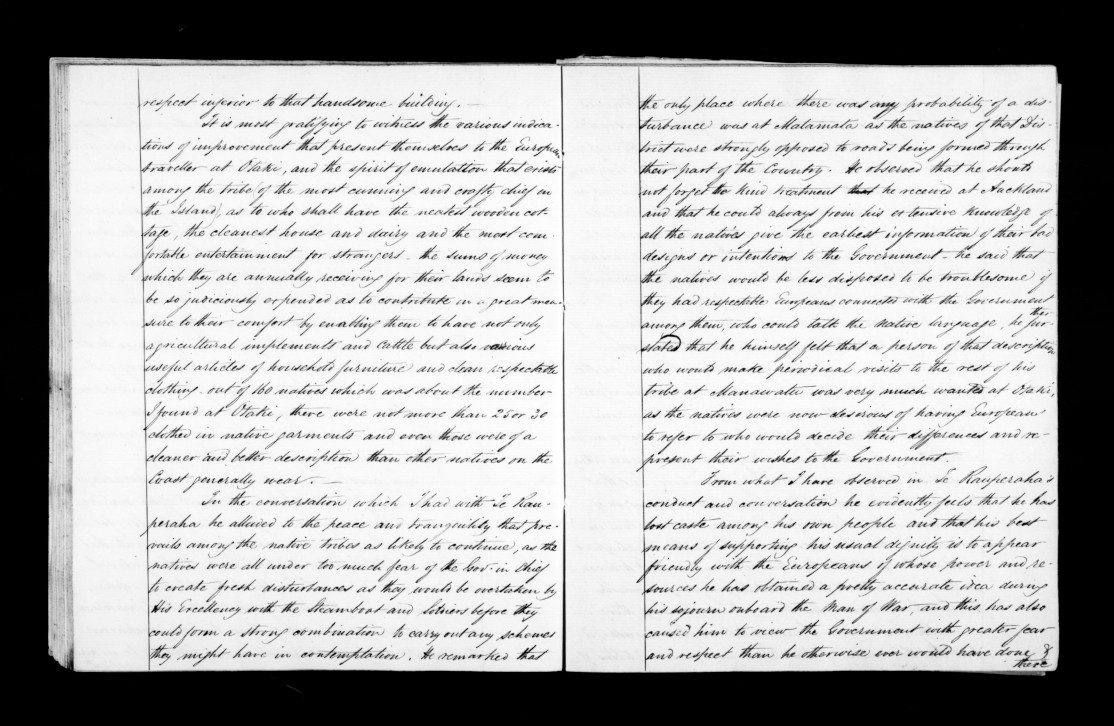 respect inferior to that handsome building. —
It is most gratifying to witness the various indica-
tions of improvement that present themselves to the European
traveller at Otaki, and the spirit of emulation that exists
among the tribe of the most cunning and crafty chief in
the Island, as to who shall have the neatest wooden cot-
tage, the cleanest house and dairy and the most com-
fortable entertainment for strangers - the sums of money
which they are annually receiving for their lands seem to
be so judiciously expended as to contribute in a great mea-
sure to their comfort by enabling them to have not only
agricultural implements and cattle but also various
useful articles of household furniture and clean respectable
clothing. out of 160 natives which was about the number
I found at Otaki, there were not more than 25 or 30
clothed in native garments and even those were of a
cleaner and better description than other natives on the
Coast generally wear. —
In the conversation which I had with Te Rau-
peraha he alluded to the peace and tranquility that pre-
vails among the native tribes as likely to continue, as the
natives were all under too much fear of the Gov-in Chief
to create fresh disturbances as they would be overtaken by
His Excellency with the Steamboat and soldiers before they
could form a strong combination to carry out any schemes
they might have in contemplation. He remarked that
the only place where there was any probability of a dis-
turbance was at Matamata as the natives of that Dis-
trict were strongly opposed to roads being formed through
their part of the Country. He observed that he should
not forget the kind treatment that he received at Auckland
and that he could always from his extensive knowledge of
all the natives give the earliest information of their bad
designs or intentions to the Government - he said that
the natives would be less disposed to be troublesome if
they had respectable Europeans connected with the Government
among them, who could talk the native language, he fur-
ther
stated that he himself felt that a person of that description
who would make periodical visits to the rest of his
tribe at Manawatu was very much wanted at Otaki,
as the natives were now desirous of having European
to refer to who would decide their differences and re-
present their wishes to the Government.
From what I have observed in Te Rauperaha's
conduct and conversation he evidently feels that he has
lost caste among his own people and that his best
means of supporting his usual dignity is to appear
friendly with the Europeans of whose power and re-
sources he has obtained a pretty accurate idea during
his sojourn onboard the Man of War, and this has also
caused him to view the Government with greater fear
and respect than he otherwise ever would have done &
there